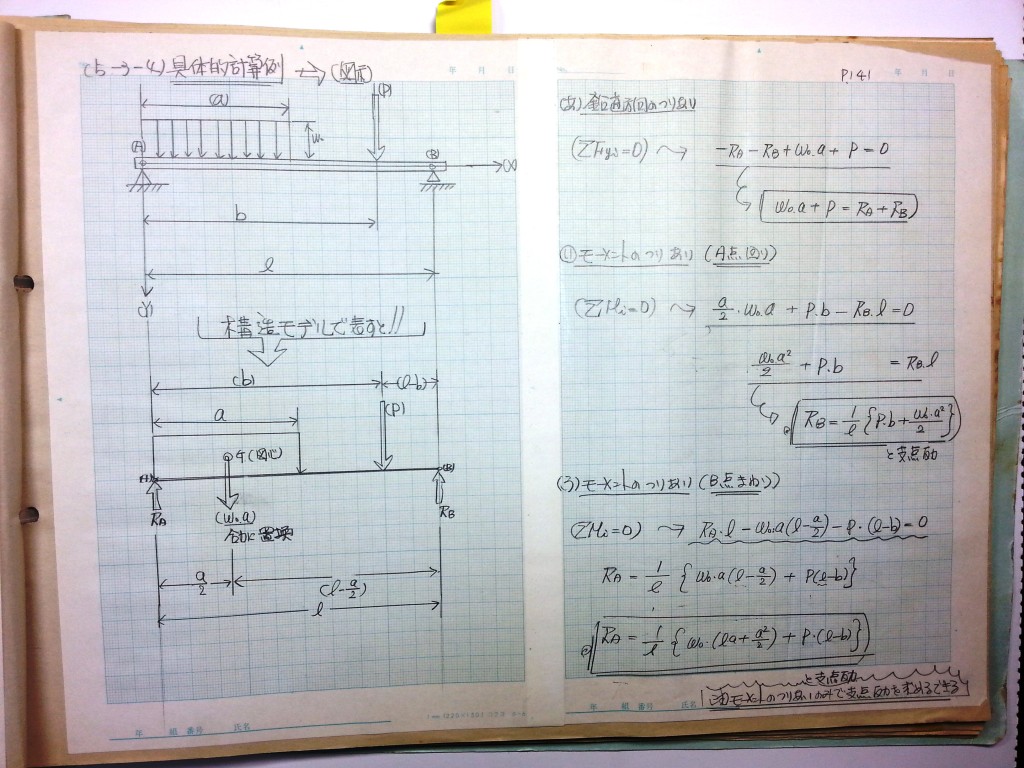 (5→-4) 具体的計算例 → (図示)
年 月 日
(a)
(P)
w₀
(A)
(B)
(X)
b
l
(Y)
構造モデルで表すと!!
(b)
(l-b)
a
(P)
G(図心)
(A)
(B)
RA
(w₀.a)
RB
合力に置換
a/2
(l-a/2)
l
年 組 番号 氏名
年 月 日
P.141
(あ) 鉛直方向のつりあい
(ΣFyi=0) ⤳ -RA-RB+w₀.a+P=0
w₀.a+P=RA+RB
モーメントのつりあい (A点回り)
(ΣMi=0) ⤳ a/2.w₀.a + P.b-RB.l=0
w₀.a²/2 + P.b = RB.l
RB=1/l{P.b+w₀.a²/2}
と支点反力
(3) モーメントのつりあい (B点まわり)
(ΣMi=0) ⤳ RA.l-w₀.a(l-a/2)-P.(l-b)=0
RA=1/l{w₀.a(l-a/2)+P(l-b)}
RA=1/l{w₀.(la+a²/2)+P.(l-b)}
と支点反力
モーメントのつりあいのみで支点反力を求めるできる
年 組 番号 氏名